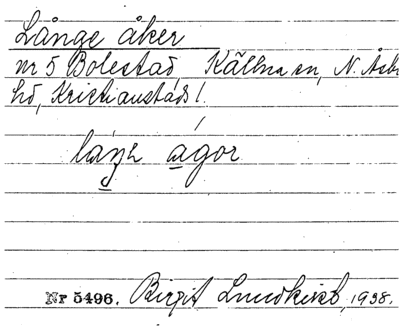 Långe åker
nr 5 Bolestad, Källna sn, N. Åsbo
hd, Kristianstads l.
agor
Nr 5496. Birgit Lundkvist, 1938.